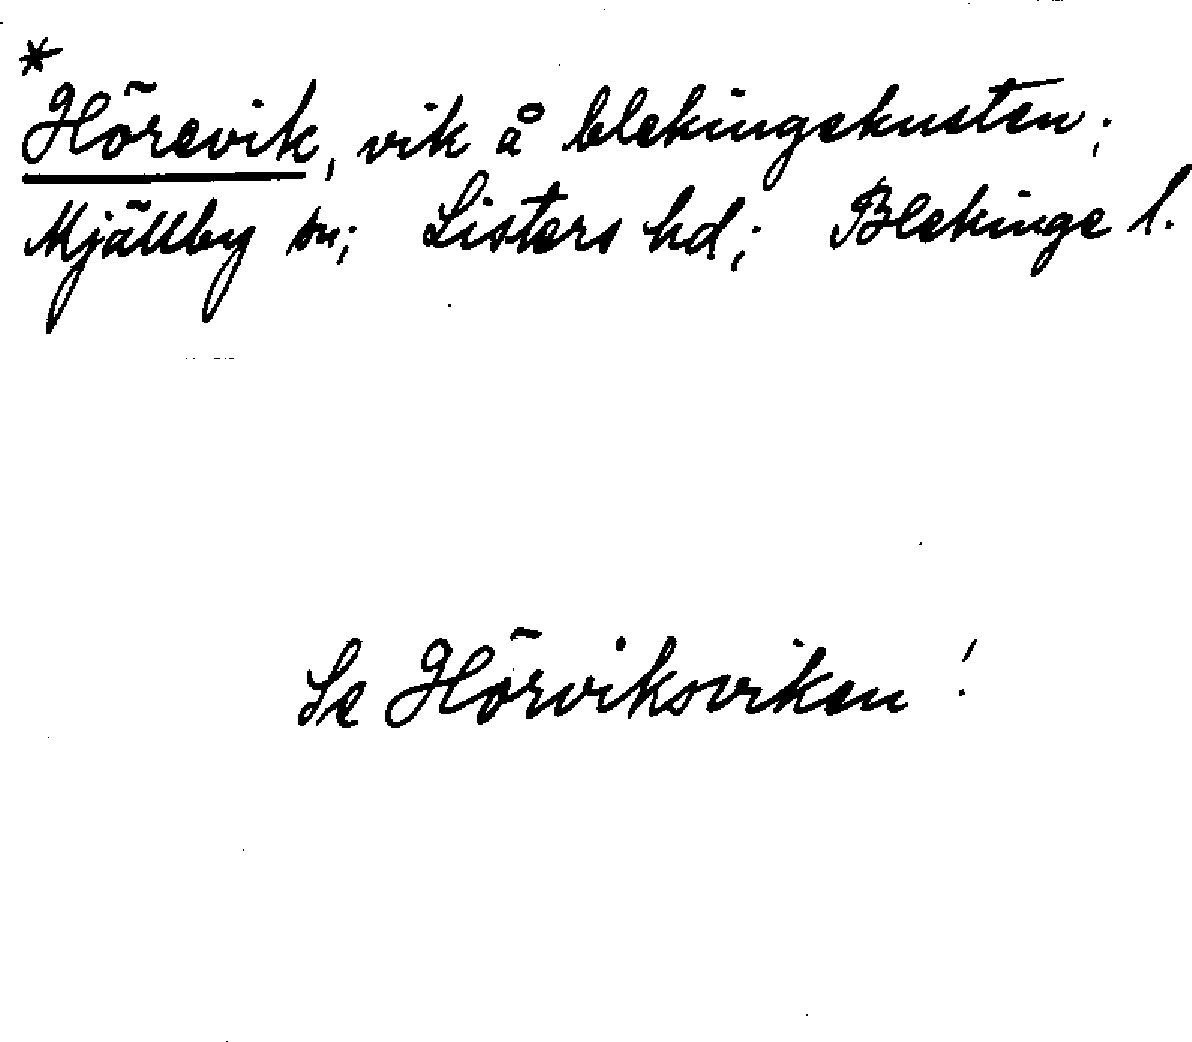 *
Hörevik, vik å blekingekusten;
Mjällby sn; Listers hd; Blekinge l.
Se Hörviksviken!